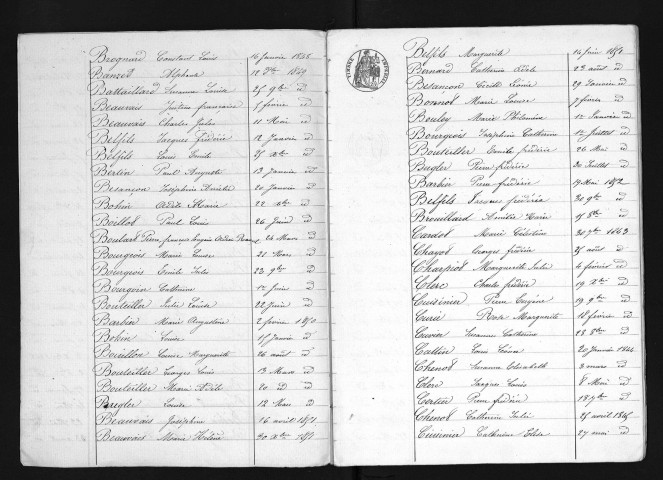 Brognard Constant Louis 16 Janvier 1848
Banzet Alphonse 12 Xbre 1849
Battaillard Suzanne Louise 25 9bre id
Beauvais Justine françoise 5 février id
Beauvais Charles Jules 11 Mai id
Belfils Jacques frédéric 12 Janvier id
Belfils Louis Emile 25 Xbre id
Bertin Paul Auguste 13 Janvier id
Besançon Joséphine 20 Janvier id
Bohin Adèle Marie 22 Xbre id
Boillot Paul Louis 26 Juin id
Boulard Pierre françois 24 Mars id
Bourgeois Marie Louise 21 Mars id
Bourgeois Emile Jules 23 9bre id
Bourgoin Catherine 12 Juin id
Bouteiller Julie Louise 22 Juin id
Barbier Marie Augustine 2 février 1850
Bohin Louise 15 Janvier id
Bouillon Louise Marguerite 26 août id
Bouteiller Georges Louis 13 Mars id
Bouteiller Marie Adèle 20 id
Bugler Louise 12 Mars id
Beauvais Joséphine 16 avril 1851
Beauvais Marie Hélène 30 Xbre 1851
Belfils Marguerite 14 Juin 1851
Bernard Catherine Adèle 22 août id
Besançon Cécile Léonie 29 Janvier id
Bonnot Marie Louise 7 février id
Bouley Marie Philomène 12 Janvier id
Bourgeois Joséphine Catherine 12 Juillet id
Bouteiller Emile frédéric 26 Mai id
Bugler Pierre frédéric 30 Juillet id
Barbier Pierre frédéric 19 Mai 1852
Belfils Jacques frédéric 30 9bre id
Brouillard Amélie Marie 15 8bre id
Cardot Marie Célestine 30 7bre 1843
Chavot Georges frédéric 25 août id
Charpiot Marguerite Julie 4 février id
Clerc Charles frédéric 19 Xbre id
Cuisinier Pierre Eugène 19 9bre id
Curie Rose Marguerite 18 février id
Cuvier Suzanne Catherine 28 8bre id
Cattin Louis 20 Janvier 1844
Chenot Suzanne Elisabeth 3 mars id
Clerc Jacques Louis 8 Mai id
Carlin Pierre frédéric 18 7bre id
Chenot Catherine Julie 25 avril 1845
Cuisinier Catherine Elise 27 mai id